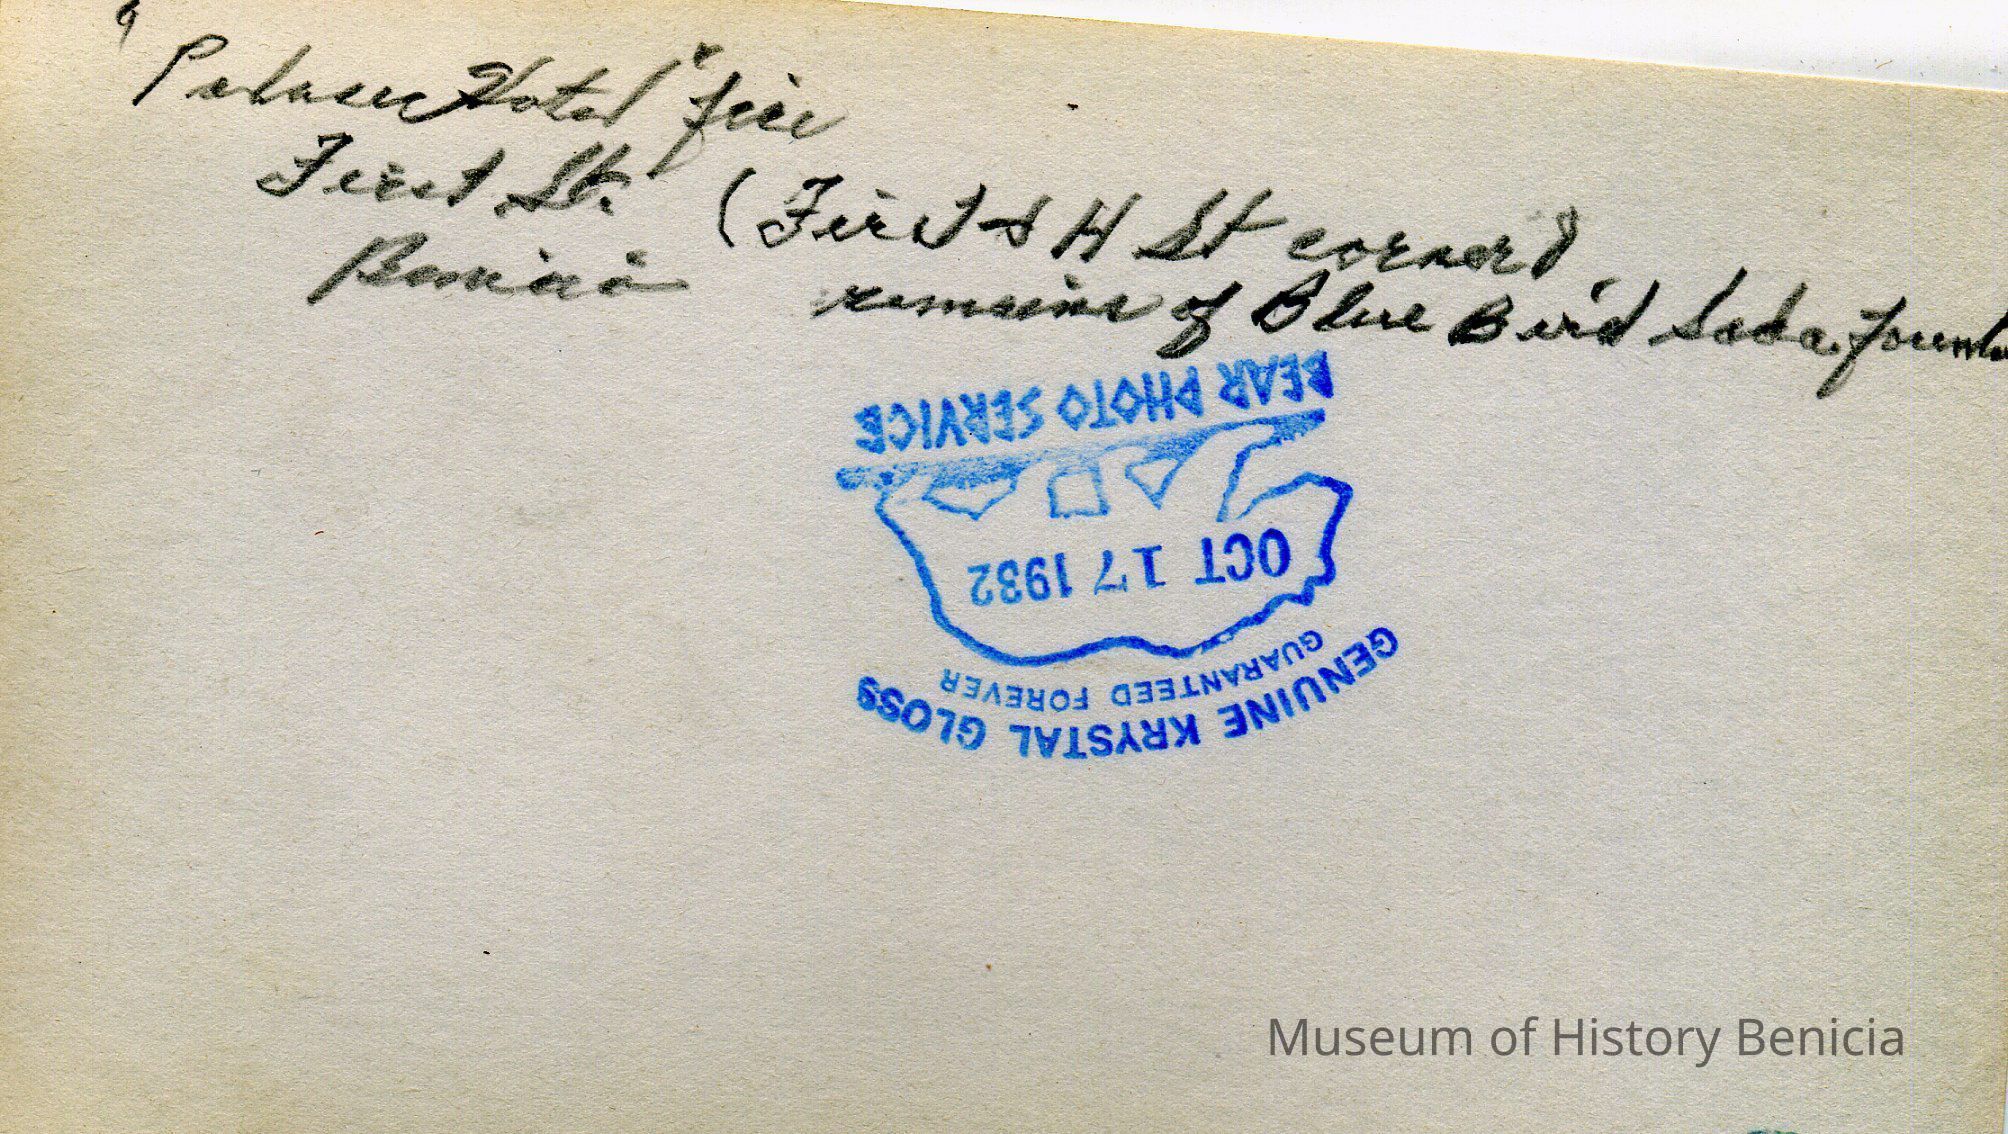 "Palace Hotel" fire
First St.
Benicia
(First & H St corner)
remains of Blue Bird Soda fount
GENUINE KRYSTAL GLOSS
GUARANTEED FOREVER
OCT 17 1932
BEAR PHOTO SERVICE
Museum of History Benicia